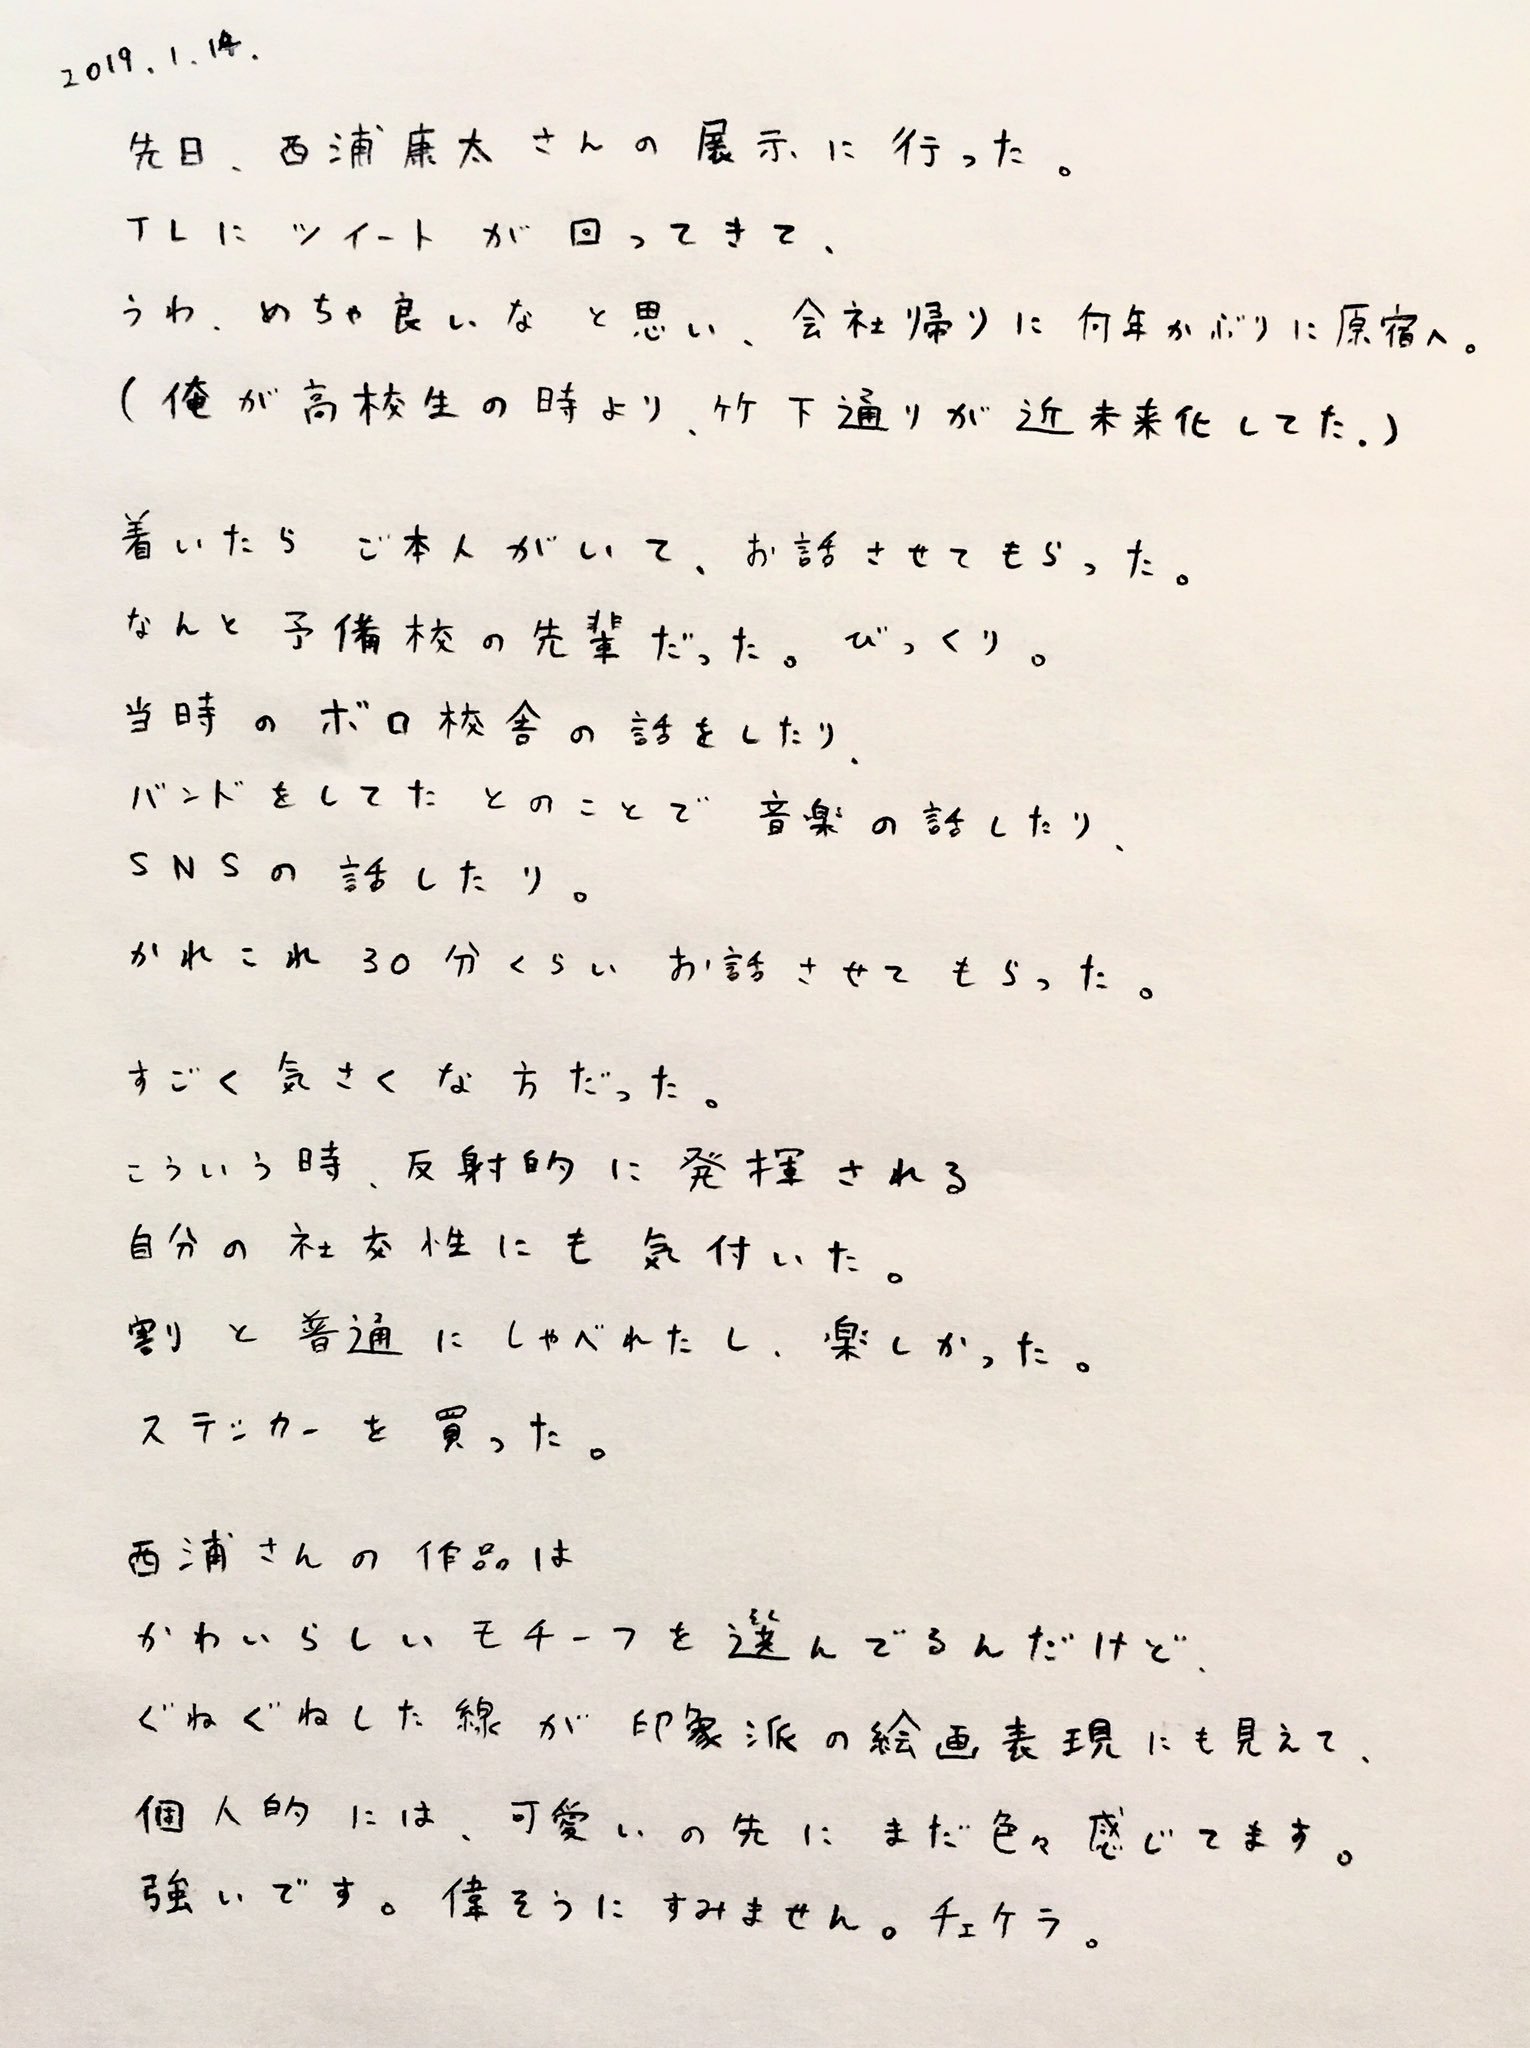 2019.1.14.
先日、西浦康太さんの展示に行った。
TLにツイートが回ってきて、
うわ、めちゃ良いなと思い、会社帰りに何年かぶりに原宿へ。
(俺が高校生の時より、竹下通りが近未来化してた。)
着いたらご本人がいて、お話させてもらった。
なんと予備校の先輩だった。びっくり。
当時のボロ校舎の話をしたり、
バンドをしてたとのことで音楽の話したり、
SNSの話したり。
かれこれ30分くらいお話させてもらった。
すごく気さくな方だった。
こういう時、反射的に発揮される
自分の社交性にも気付いた。
割りと普通にしゃべれたし、楽しかった。
ステッカーを買った。
西浦さんの作品は
かわいらしいモチーフを選んでるんだけど、
ぐねぐねした線が印象派の絵画表現にも見えて、
個人的には、可愛いの先にまだ色々感じてます。
強いです。偉そうにすみません。チェケラ。